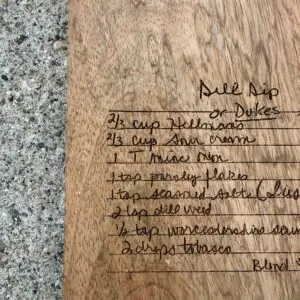 Dill Dip
or Dukes
2/3 cup Hellmans
2/3 cup Sour cream
1 T mince onion
1 tsp parsley flakes
1 tsp seasoned salt (
2 tsp dill weed
1/2 tsp worcestershire
2 drops tobasco
Blend